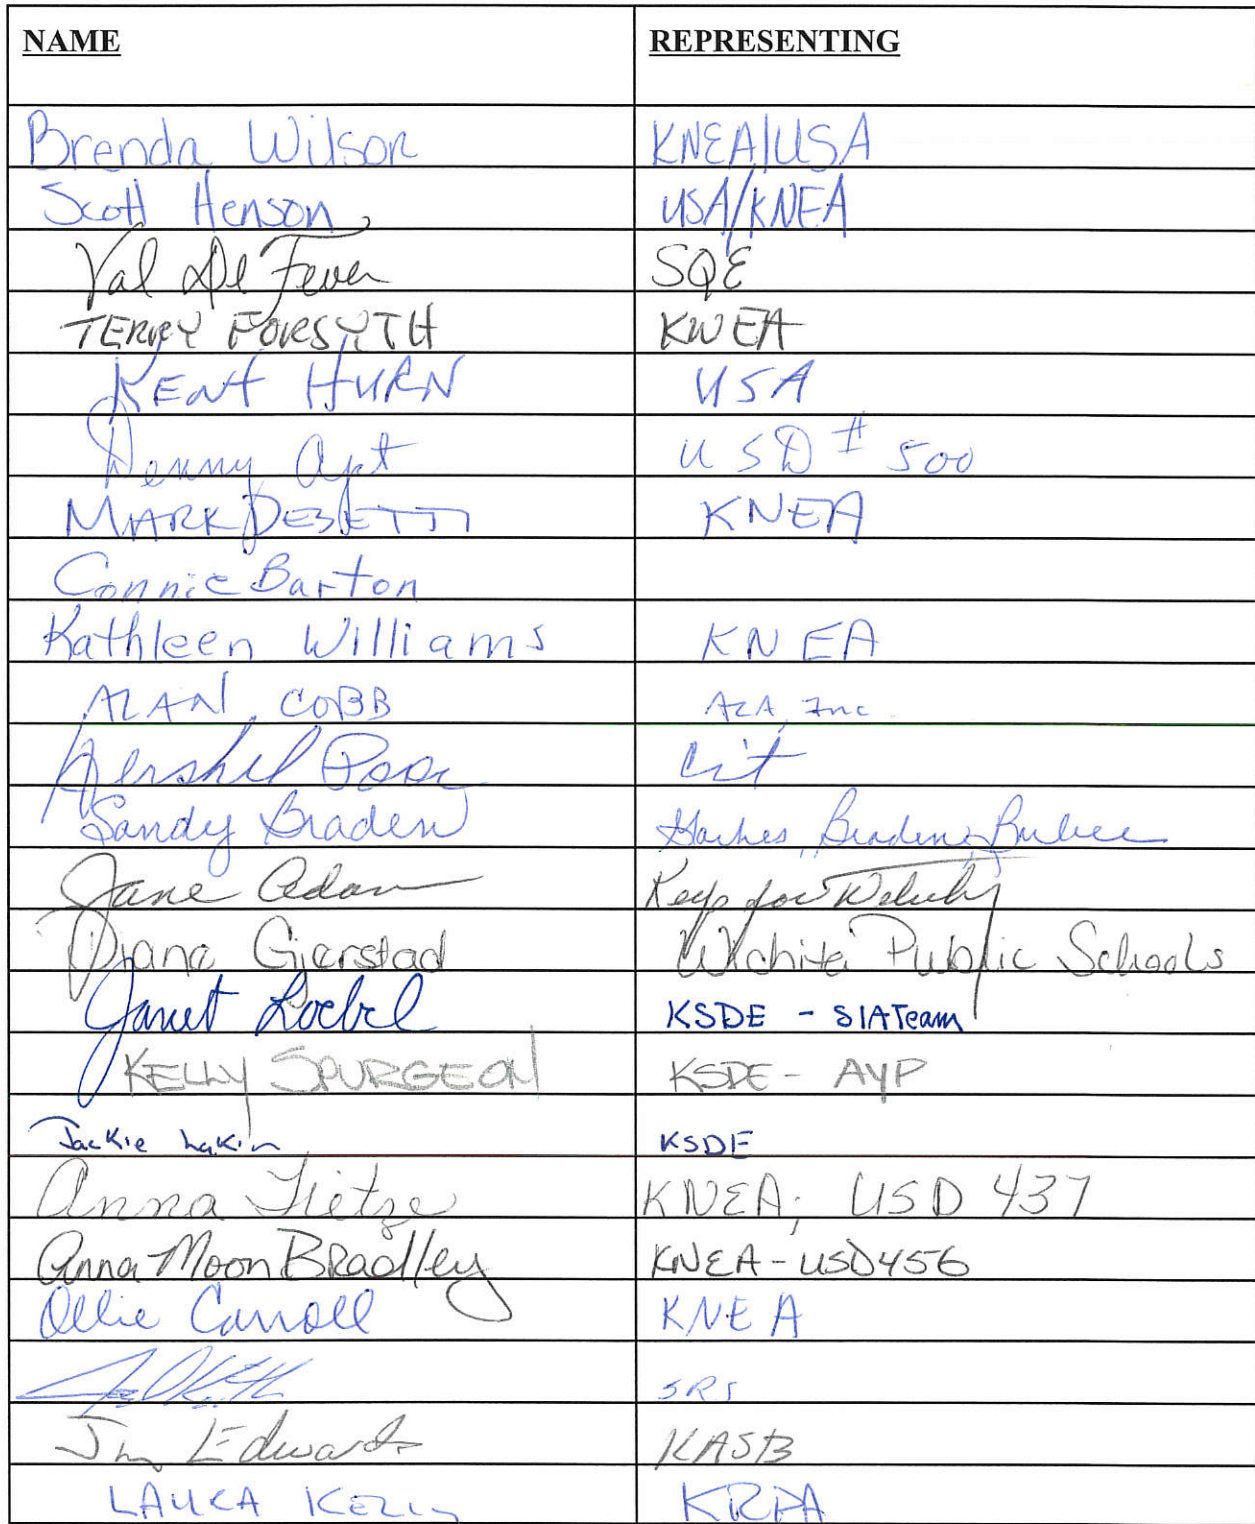 NAME REPRESENTING
Brenda Wilson KNEA/USA
Scott Henson USA/KNEA
Val DeFever SQE
TERRY FORSYTH KNEA
KENT HURN USA
Denny Apt USD # 500
MARK DESETTI KNEA
Connie Barton
Kathleen Williams KNEA
ALAN COBB ALA, Inc.
Hershel Cit
Sandy Braden Braden,
Jane Adam Keys for
Diana Gjerstad Wichita Public Schools
Janet Loebel KSDE - SIATeam
KELLY SPURGEON KSDE - AYP
Jackie Lakin KSDE
Anna Tietze KNEA; USD 437
Anna Moon Bradley KNEA-USD456
Ollie Carroll KNEA
SRS
Jim Edwards KASB
LAURA KELLY KRPA